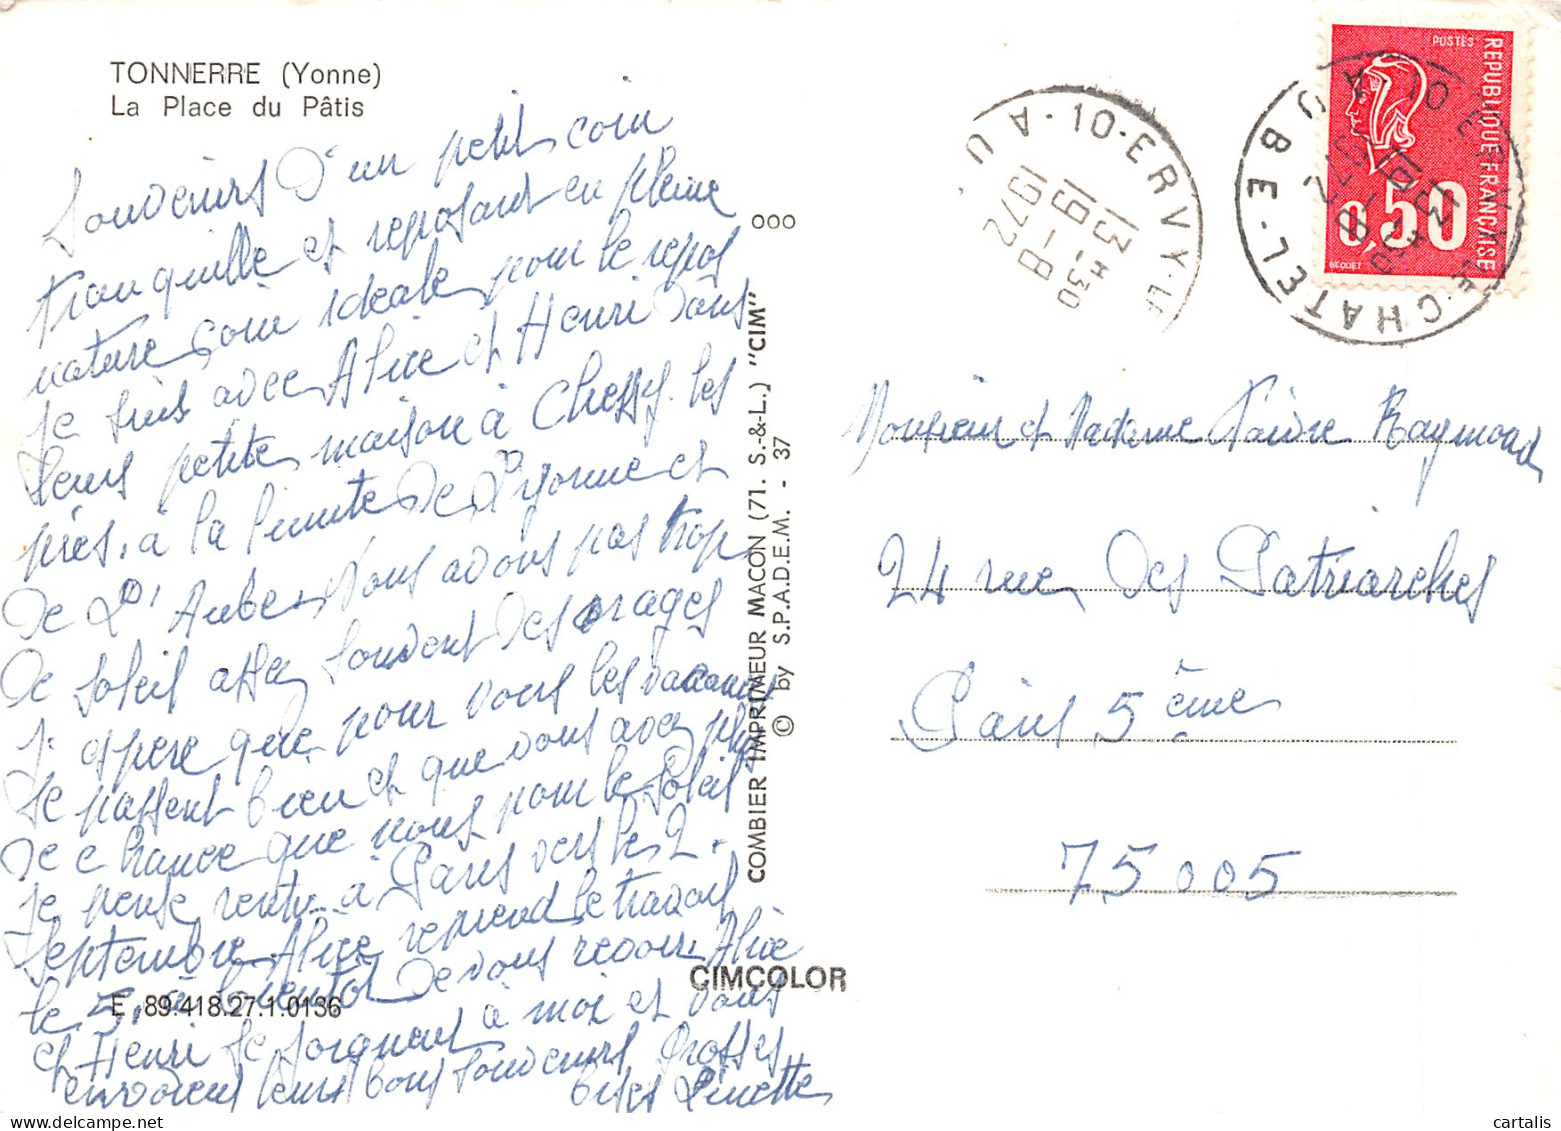 TONNERRE (Yonne)
La Place du Pâtis
Souvenirs d'un petit coin
tranquille et reposant en pleine
nature, coin idéale pour le repos
je suis avec Alice et Henri dans
leur petite maison à Chessy les
près, à la limite de L'yonne et
De L'Aube. Nous avons pas trop
De soleil assez souvent des orages
J'espère que pour vous les vacances
se passent bien et que vous avez plus
De chance que nous pour le soleil
je pense rentrer à Paris vers le 2
Septembre Alice reprend le travail
le 5. à bientôt De vous revoir, Alice
et Henri se joignent à moi et vous
envoient leurs bons souvenirs Grosses
bises Linette
E 89.418.27.1.0136
CIMCOLOR
COMBIER IMPRIMEUR MACON (71. S.-&-L.) "CIM"
© by S.P.A.D.E.M. - 37
000
10-ERVY-LE
AU
13H30
19-8
1972
10 ERVY-LE-CHATEL-
AUBE
13H30
19-8
1972
POSTES
REPUBLIQUE FRANÇAISE
0,50
BEQUET
Monsieur et Madame Faivre Raymond
24 rue des Patriarches
Paris 5ème
75005
© cartalis
www.delcampe.net